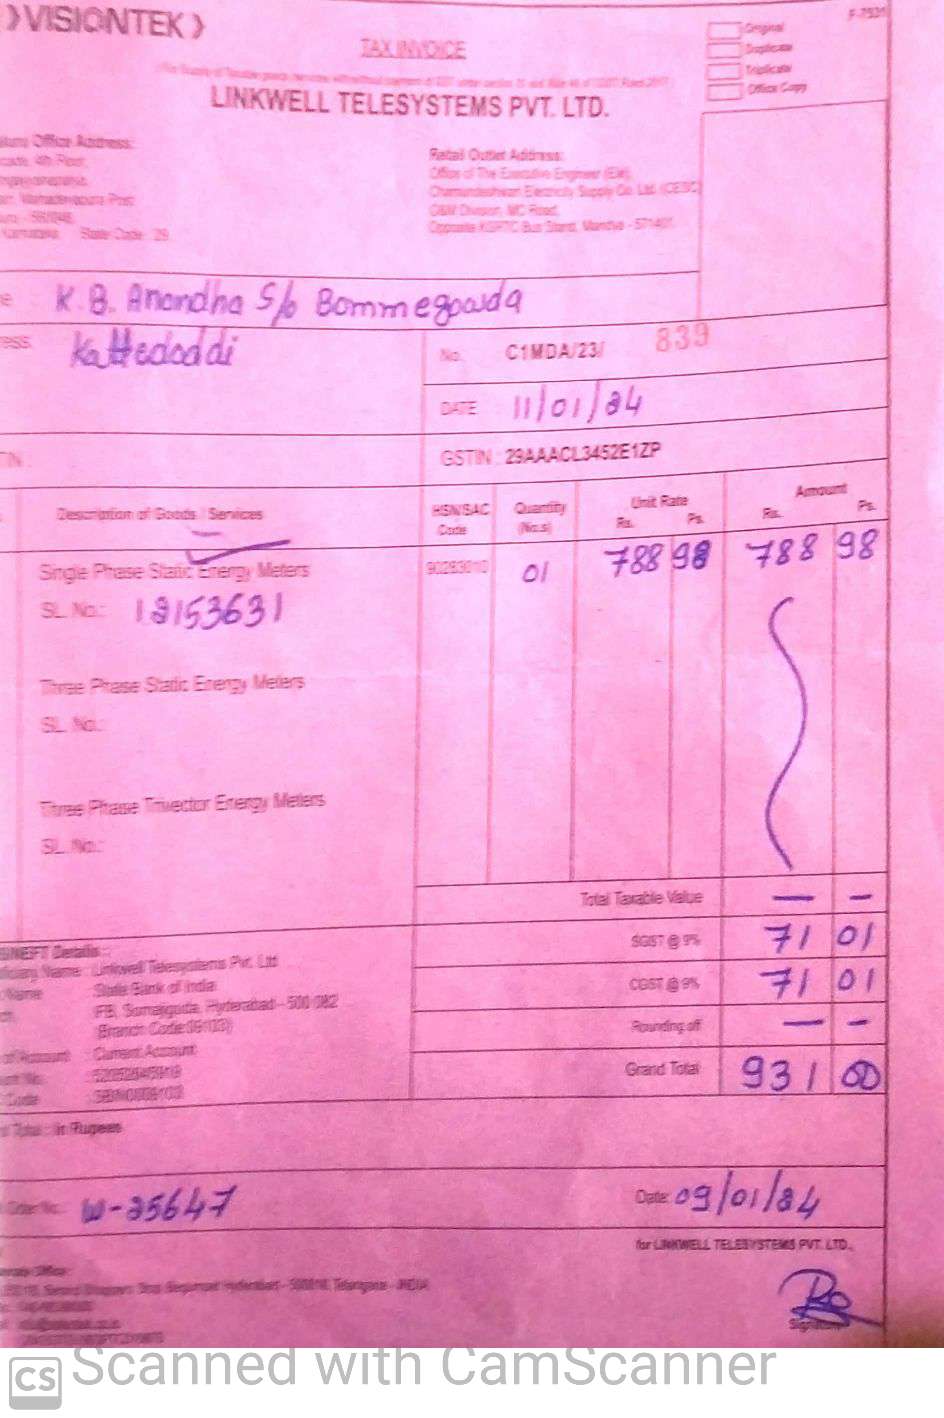 VISIONTEK
F-7531
TAX INVOICE
Original
Duplicate
Triplicate
Office Copy
LINKWELL TELESYSTEMS PVT. LTD.
Office Address:
Retail Outlet Address:
Office of The Executive Engineer (Ele),
Chamundeshwari Electricity Supply Co. Ltd. (CESC)
O&M Division, MC Road,
Opposite KSRTC Bus Stand, Mandya - 571401.
Karnataka State Code : 29
K.B. Anandha S/o Bommegowda
Kattedoddi
No. C1MDA/23/ 839
DATE 11/01/24
GSTIN : 29AAACL3452E1ZP
Description of Goods / Services
HSN/SAC Code
Quantity (No.s)
Unit Rate Rs. Ps.
Amount Rs. Ps.
Single Phase Static Energy Meters 90283010 01 788 98 788 98
SL. No.: 12153631
Three Phase Static Energy Meters
SL. No.:
Three Phase Trivector Energy Meters
SL. No.:
Total Taxable Value — —
SGST @ 9% 71 01
CGST @ 9% 71 01
Rounding off — —
Grand Total 931 00
Details :
Name : Linkwell Telesystems Pvt. Ltd
Name : State Bank of India
IFB, Somajiguda, Hyderabad - 500 082
of Account : Current Account
Code
Total : In Rupees
W-25647
Date: 09/01/24
for LINKWELL TELESYSTEMS PVT. LTD.,
Signature
CS Scanned with CamScanner